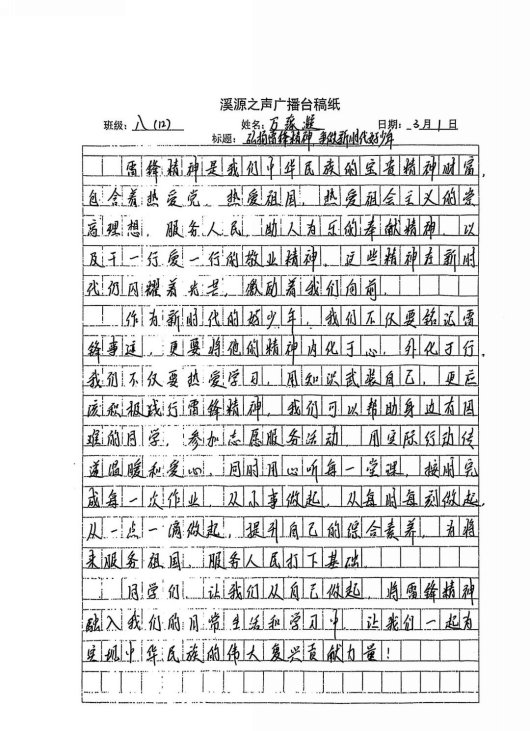 溪源之声广播台稿纸
班级：八(12) 姓名：万 日期：3月1日
标题：弘扬雷锋精神 争做新时代好少年
雷锋精神是我们中华民族的宝贵精神财富，
包含着热爱党、热爱祖国、热爱社会主义的崇
高理想，服务人民、助人为乐的奉献精神，以
及干一行爱一行的敬业精神。这些精神在新时
代仍闪耀着光芒，激励着我们向前。
作为新时代的好少年，我们不仅要铭记雷
锋事迹，更要将他的精神内化于心，外化于行。
我们不仅要热爱学习，用知识武装自己，更应
该积极践行雷锋精神，我们可以帮助身边有困
难的同学，参加志愿服务活动，用实际行动传
递温暖和爱心，同时用心听每一堂课，按时完
成每一次作业，从小事做起，从每时每刻做起，
从一点一滴做起，提升自己的综合素养，为将
来服务祖国，服务人民打下基础。
同学们，让我们从自己做起，将雷锋精神
融入我们的日常生活和学习中，让我们一起为
实现中华民族的伟大复兴贡献力量！